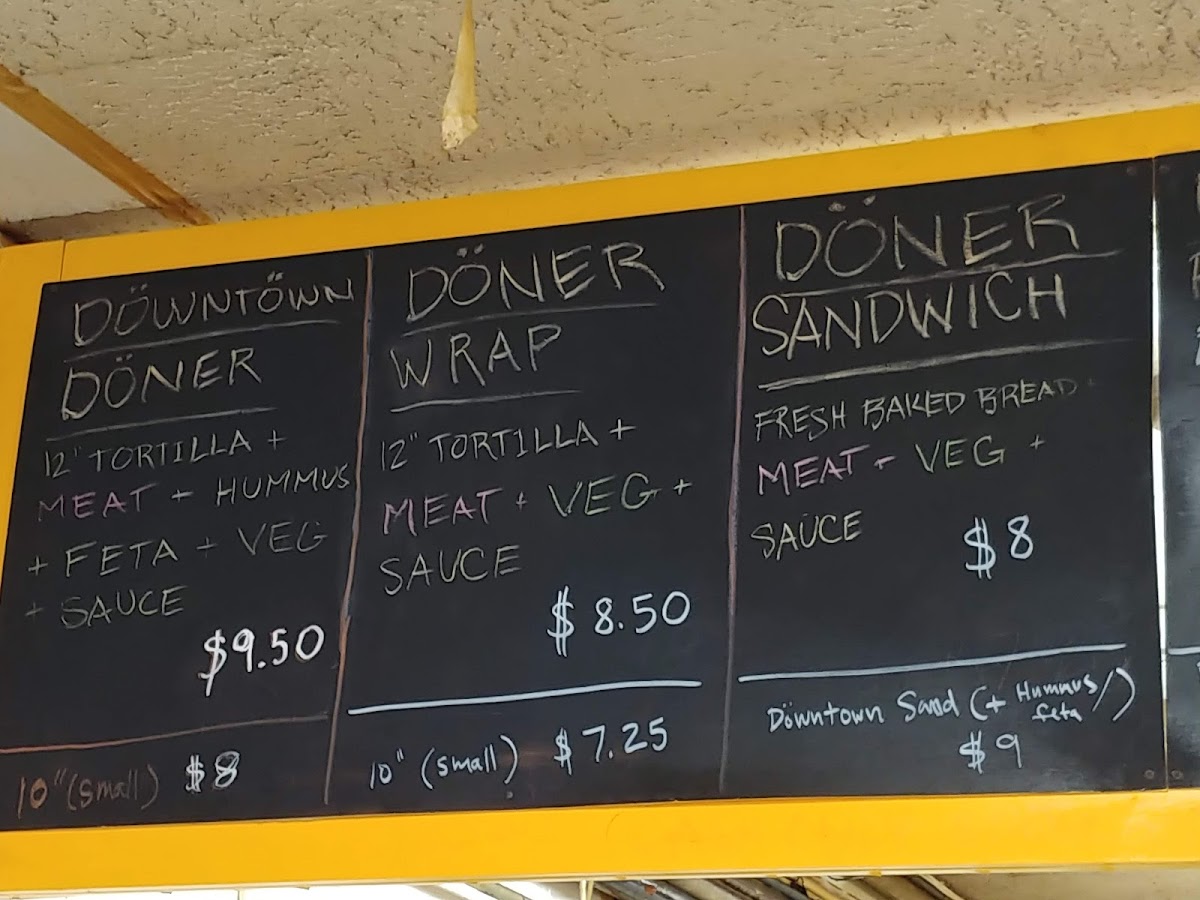 DÖWNTÖWN
DÖNER
12" TORTILLA +
MEAT + HUMMUS
+ FETA + VEG
+ SAUCE
$9.50
10" (small) $8
DÖNER
WRAP
12" TORTILLA +
MEAT + VEG +
SAUCE
$8.50
10" (small) $7.25
DÖNER
SANDWICH
FRESH BAKED BREAD +
MEAT + VEG +
SAUCE
$8
Döwntown Sand (+ Hummus/
feta)
$9